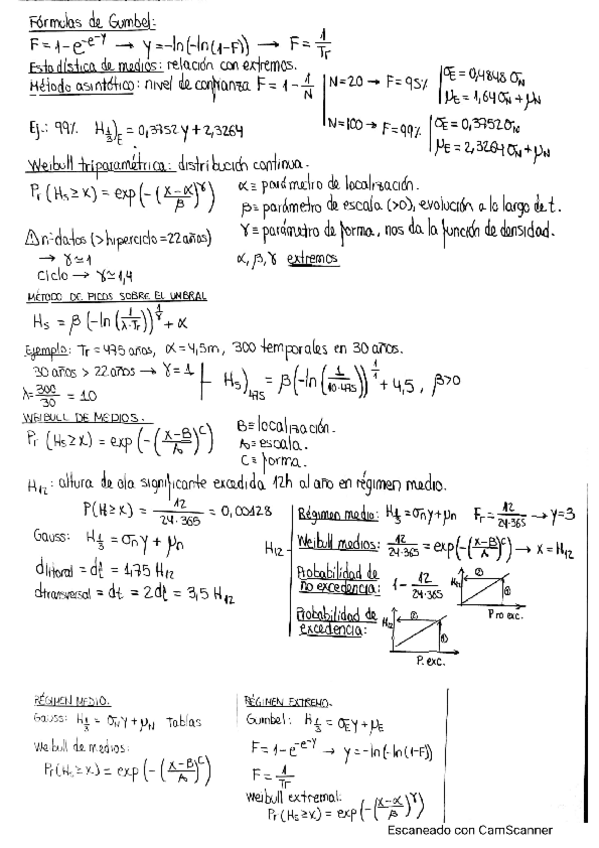 Fórmulas de Gumbel:
F = 1 - e^-e^-y → y = -ln(-ln(1-F)) → F = 1/Tr
Estadística de medios: relación con extremos.
Método asintótico: nivel de confianza F = 1 - 1/N | N=20 → F=95% | σE = 0,4848 σN
μE = 1,64 σN + μN
N=100 → F=99% | σE = 0,3752 σN
μE = 2,3264 σN + μN
Ej.: 99% H1/3)E = 0,3752 y + 2,3264
Weibull triparamétrica: distribución continua.
Pr (Hs ≥ x) = exp(-((x-α)/β)^γ)
α = parámetro de localización.
β = parámetro de escala (>0), evolución a lo largo de t.
γ = parámetro de forma, nos da la función de densidad.
α, β, γ extremos
⚠ nº datos (> hiperciclo = 22 años)
→ γ ≃ 1
Ciclo → γ ≃ 1,4
MÉTODO DE PICOS SOBRE EL UMBRAL
Hs = β (-ln(1/(λ·Tr)))^(1/γ) + α
Ejemplo: Tr = 475 años, α = 4,5m, 300 temporales en 30 años.
30 años > 22 años → γ = 1
λ = 300/30 = 10
Hs)475 = β(-ln(1/(10·475)))^(1/1) + 4,5, β>0
WEIBULL DE MEDIOS.
Pr (Hs ≥ x) = exp(-((x-B)/A)^C)
B = localización.
A = escala.
C = forma.
H12: altura de ola significante excedida 12h al año en régimen medio.
P(H ≥ x) = 12/(24·365) = 0,00128
Gauss: H1/3 = σn y + μn
dlitoral = dℓ = 1,75 H12
dtransversal = dt = 2dℓ = 3,5 H12
H12
Régimen medio: H1/3 = σn y + μn Fr = 12/(24·365) → y=3
Weibull medios: 12/(24·365) = exp(-((x-B)/A)^C) → x = H12
Probabilidad de no excedencia: 1 - 12/(24·365)
H12 ② ① P no exc.
Probabilidad de excedencia:
H12 ② ① P. exc.
RÉGIMEN MEDIO.
Gauss: H1/3 = σN y + μN Tablas
Weibull de medios:
Pr (Hs ≥ x) = exp(-((x-B)/A)^C)
RÉGIMEN EXTREMO.
Gumbel: H1/3 = σE y + μE
F = 1 - e^-e^-y → y = -ln(-ln(1-F))
F = 1/Tr
Weibull extremal:
Pr (Hs ≥ x) = exp(-((x-α)/β)^γ)
Escaneado con CamScanner